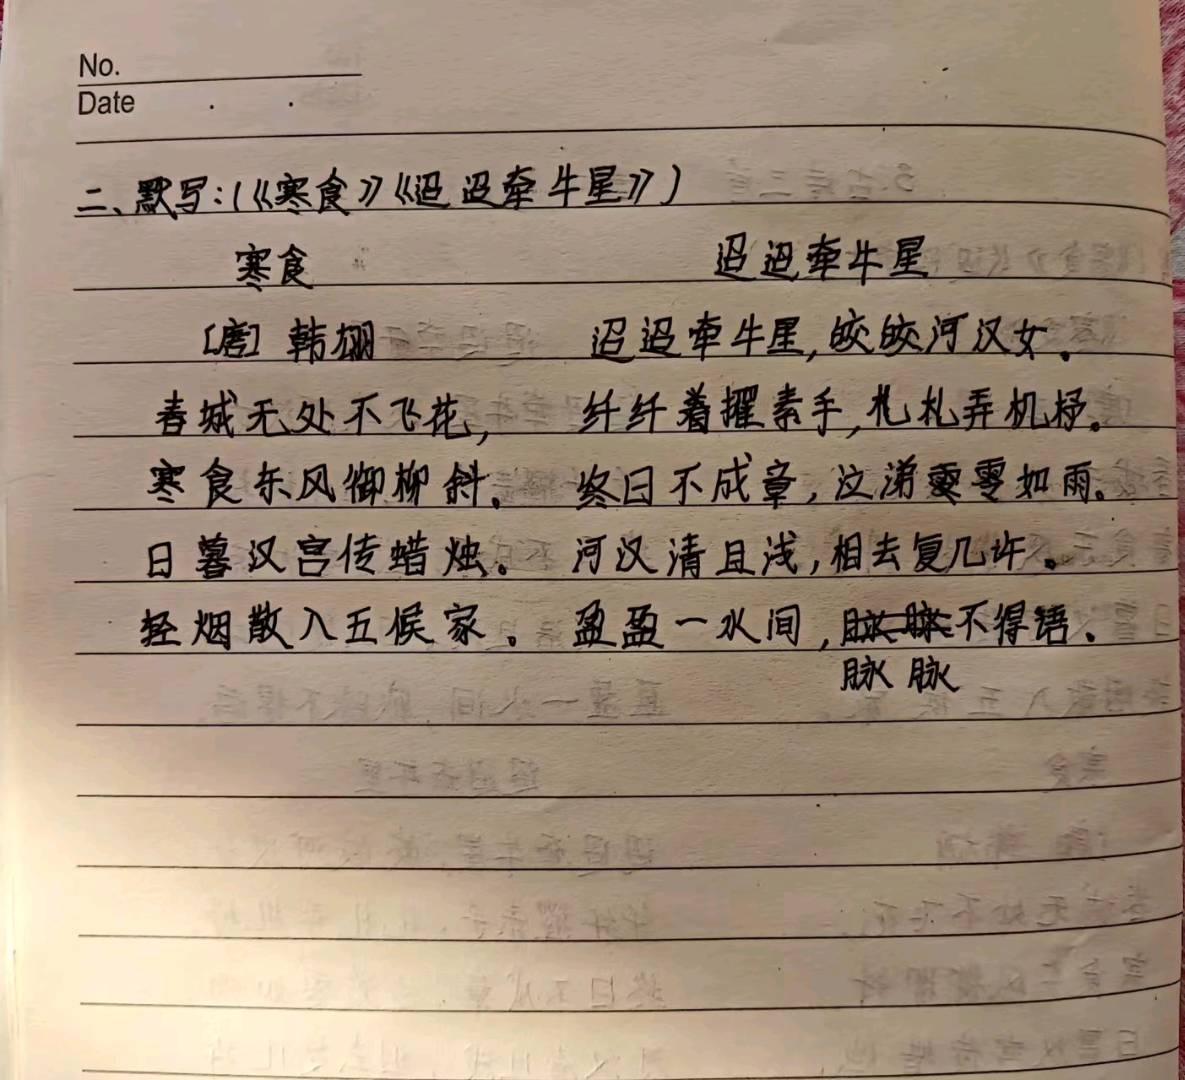 No.
Date
二、默写:(《寒食》《迢迢牵牛星》)
寒食
[唐] 韩翃
春城无处不飞花,
寒食东风御柳斜。
日暮汉宫传蜡烛。
轻烟散入五候家。
迢迢牵牛星
迢迢牵牛星,皎皎河汉女。
纤纤着擢素手,札札弄机杼。
终日不成章,泣涕零如雨。
河汉清且浅,相去复几许。
盈盈一水间,不得语、
脉脉